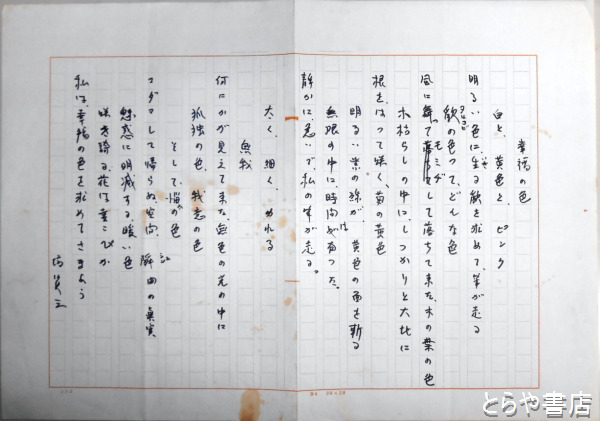 幸福の色
白と、黄色と、ピンク
明るい色に、生る歓を求めて、筆が走る
ヨロコビ
歓の色って、どんな色
風に舞って落ちて来た、木の葉の色
モミヂ
木枯らしの中に、しっかりと大地に
根を、はって咲く、菊の黄色
明るい紫の線が、黄色の面を斬る
無限の中に、時間が有った。
静かに、急いで、私の筆が走る。
太く、細く、かれる
無我
何にかが見えて来た、色の光の中に
孤独の色、残念の色
そして、悩の色
コダマして帰らぬ空間、瞬間の真実
魅惑に明滅する、暖い色
咲き誇る、花は喜こびか
私は、幸福の色を求めてさまよう
とらや書店